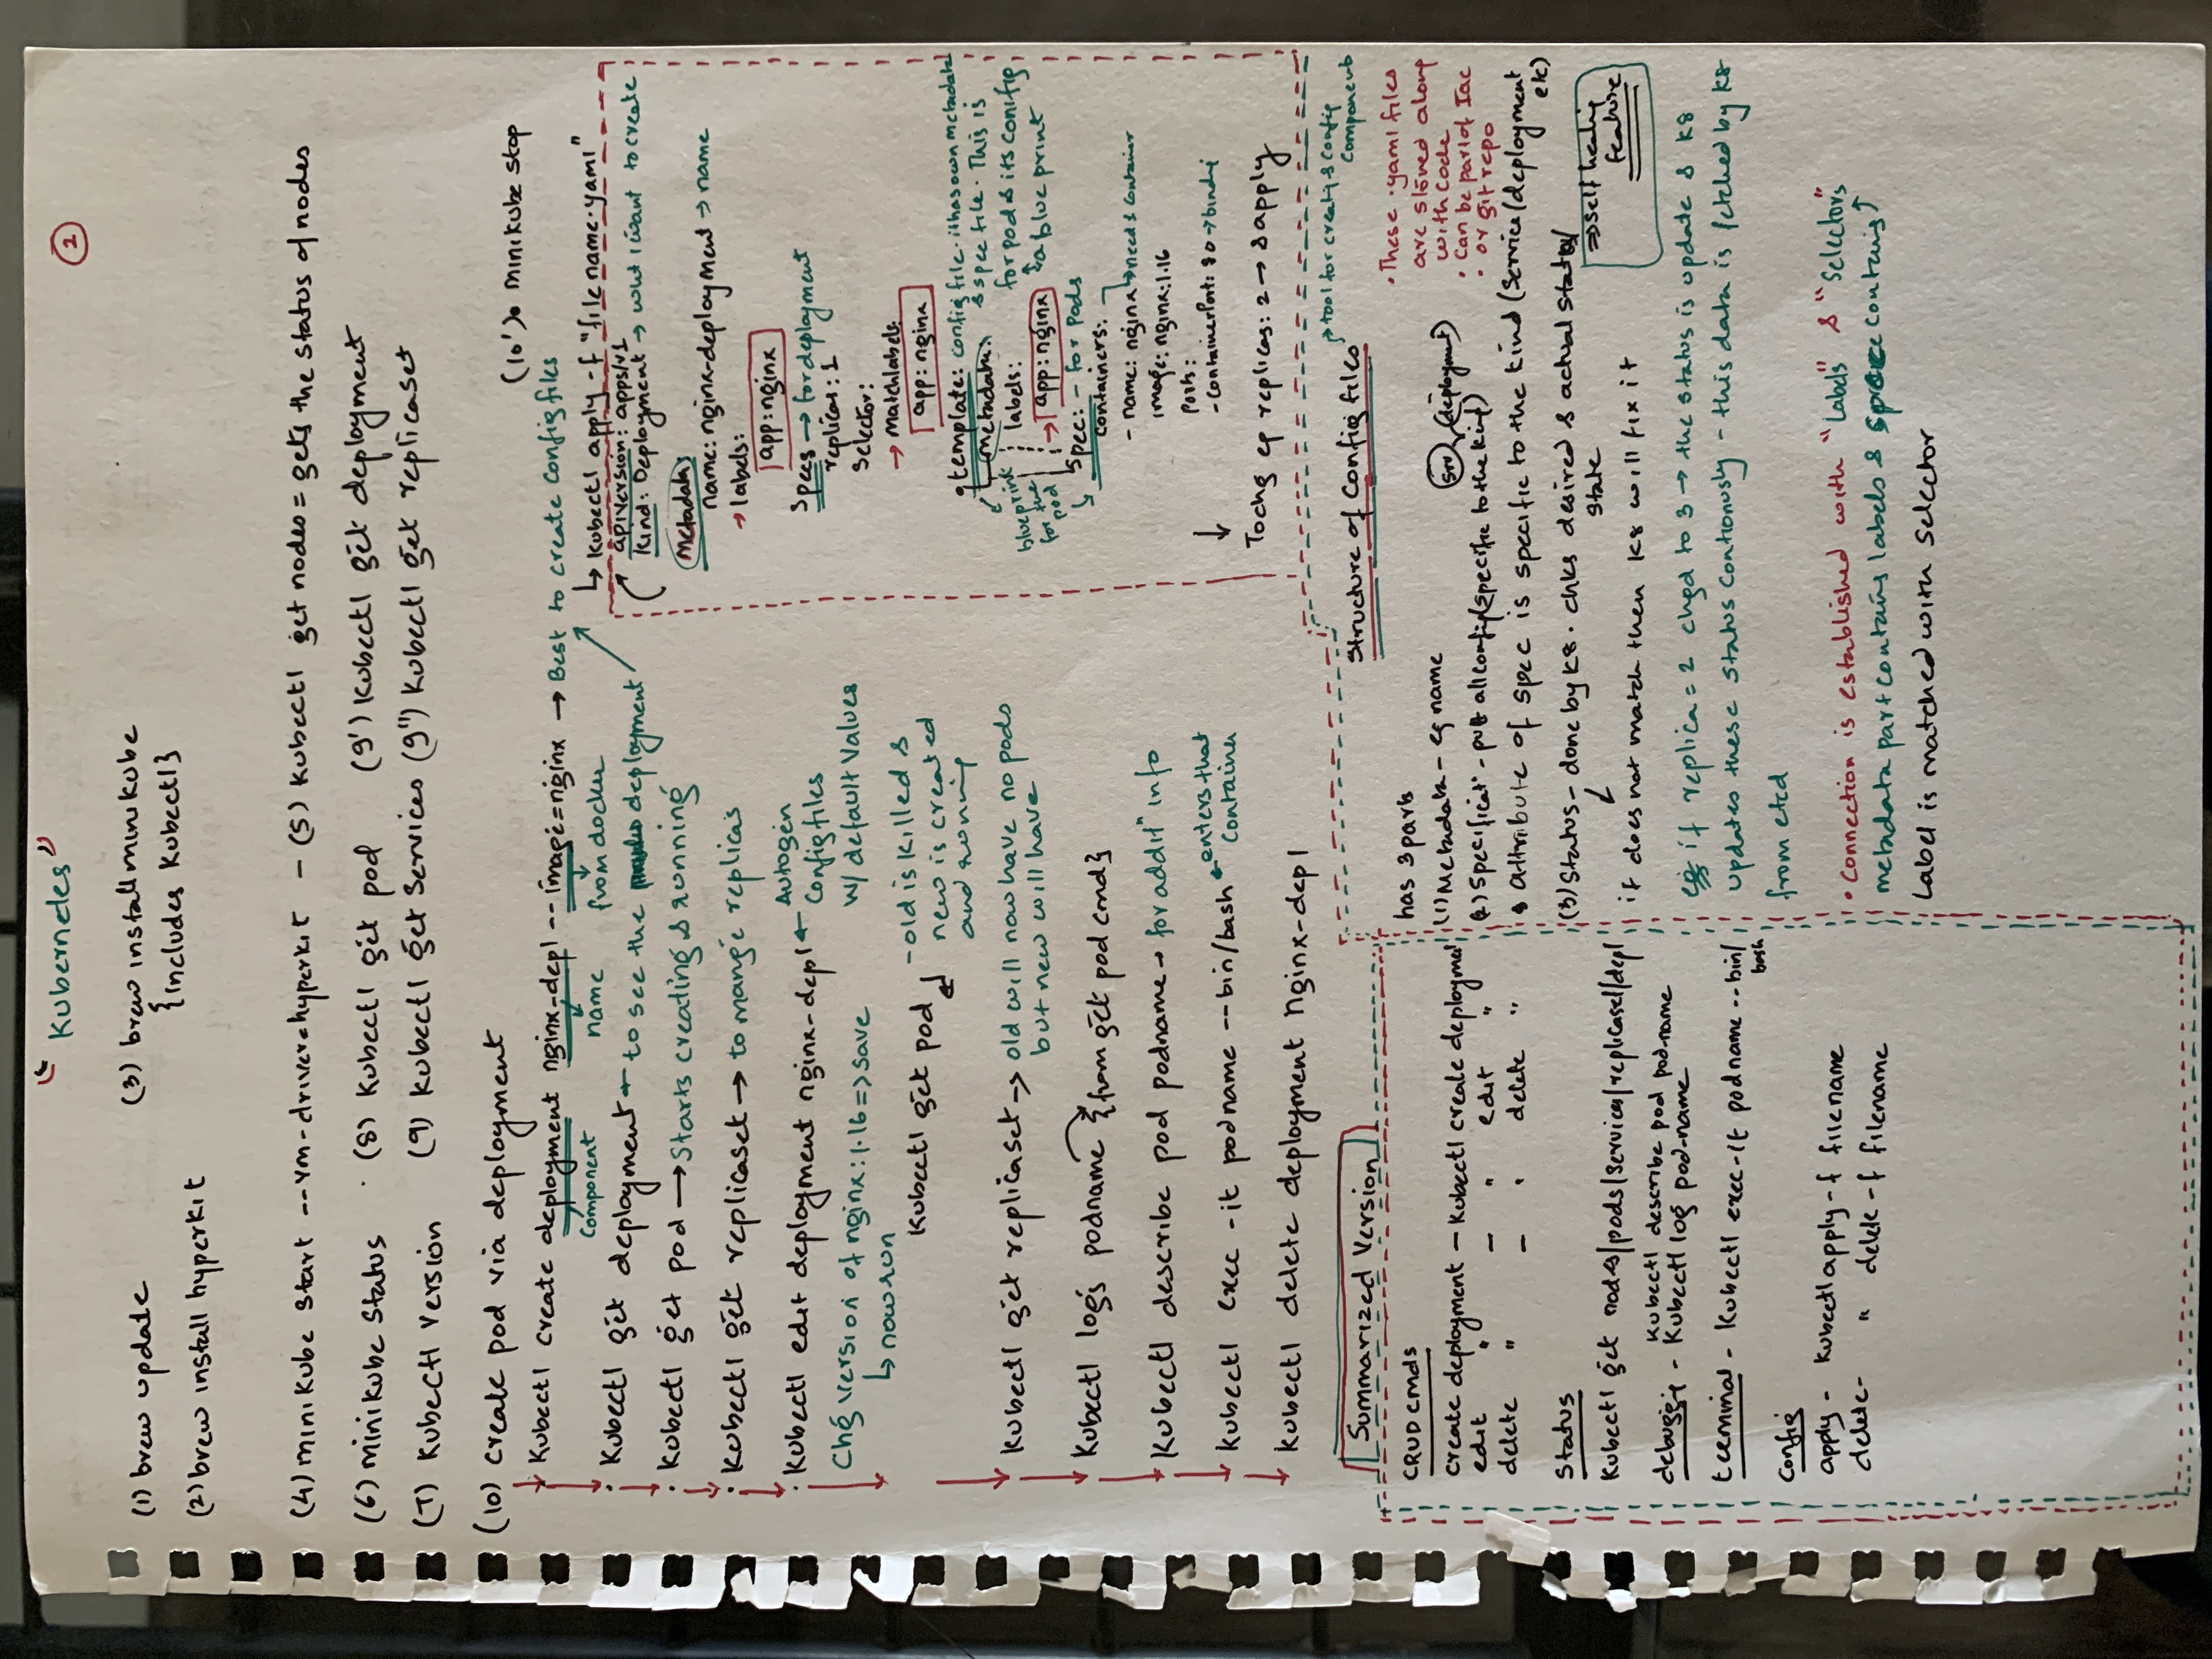 "Kubernetes"
2
(1) brew update
(2) brew install hyperkit
(3) brew install minikube
{includes Kubectl}
(4) minikube start --vm-driver=hyperkit - (5) Kubectl get nodes = gets the status of nodes
(6) minikube status
(8) Kubectl get pod
(9') Kubectl get deployment
(7) Kubectl version
(9) Kubectl get services
(9") Kubectl get replicaset
(10) create pod via deployment
(10') minikube stop
Kubectl create deployment nginx-depl --image=nginx → Best to create Config files
component
name
from docker
Kubectl get deployment ← to see the deployment
Kubectl get pod → Starts creating & running
Kubectl get replicaset → to mange replicas
Kubectl edit deployment nginx-depl ← Autogen
Config files
w/ default values
Chg version of nginx:1.16 => save
↳ now run
Kubectl get pod
- old is killed &
new is created
and runing
Kubectl get replicaset → old will now have no pods
but new will have
Kubectl logs podname {from get pod cmd}
Kubectl describe pod podname → for addit" info
Kubectl exec -it podname --bin/bash ← enters that
container
Kubectl delete deployment nginx-depl
↳ kubectl apply -f "file name.yaml"
apiversion: apps/v1
Kind: Deployment → what i want to create
Metadata:
name: nginx-deployment → name
→ labels:
app: nginx
Specs → for deployment
replicas: 1
Selector:
→ matchlabels:
app: nginx
template: config file. it has own metadata
& spec file. This is
for pod & its config
a blue print
metadata:
labels:
→ app: nginx
blueprint
for the
pod
Spec: - for pods
containers:
- name: nginx → need & container
image: nginx:1.16
ports:
- containerPort: 80 → binding
To chg eg replicas: 2 → & apply
Summarized Version
CRUD cmds
create deployment - Kubectl create deployment
edit " - " edit "
delete " - " delete "
Status
Kubectl get nodes/pods/services/replicaset/depl
Kubectl describe pod pod-name
debuggig - Kubectl log pod-name
terminal - Kubectl exec-it podname --bin/
bash
Config
apply - Kubectl apply -f filename
delete - " delete -f filename
Structure of Config files
→ tool for creatig & config
components
has 3 parts
(1) Metadata - eg name
srv
(deployment)
(2) Specificat" - put all config (specific to the kind)
• attribute of spec is specific to the kind (Service/deployment
etc)
(3) Status - done by K8. chks desired & actual status/
state
if does not match then K8 will fix it
⇒ self healig
feature
• These .yaml files
are stored along
with code
• Can be part of Iac
• or git repo
eg if replica = 2 chgd to 3 → the status is update & K8
updates these status continously - this data is fetched by K8
from etcd
• Connection is established with "labels" & "Selectors"
metadata part contains labels & spec contains
Label is matched with Selector